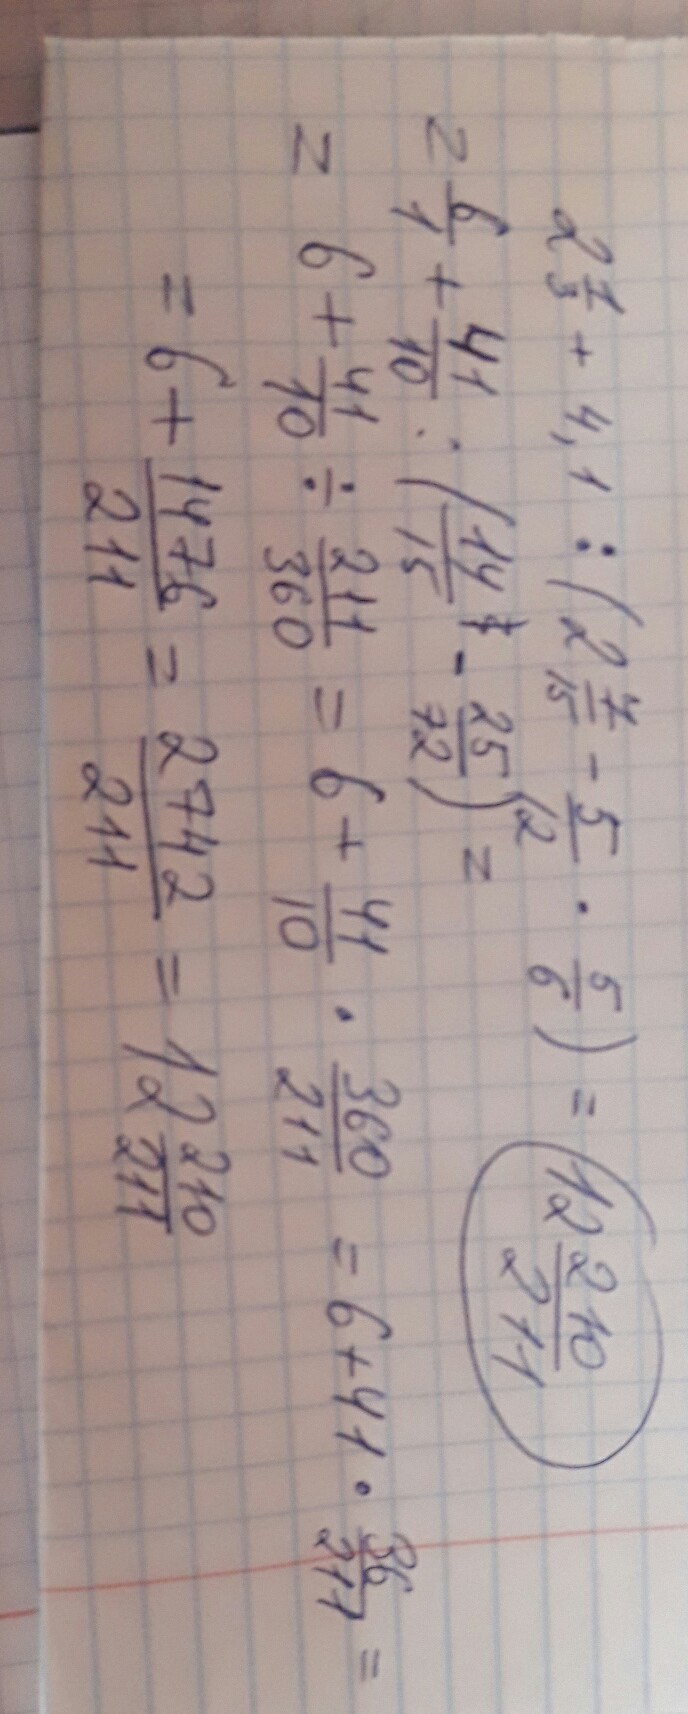 2 1/3 + 4,1 : (2 7/15 - 5/12 · 5/6) = 12 210/211
= 6/1 + 41/10 : (14/15 - 25/72) =
= 6 + 41/10 ÷ 211/360 = 6 + 41/10 · 360/211 = 6 + 41 · 36/211 =
= 6 + 1476/211 = 2742/211 = 12 210/211